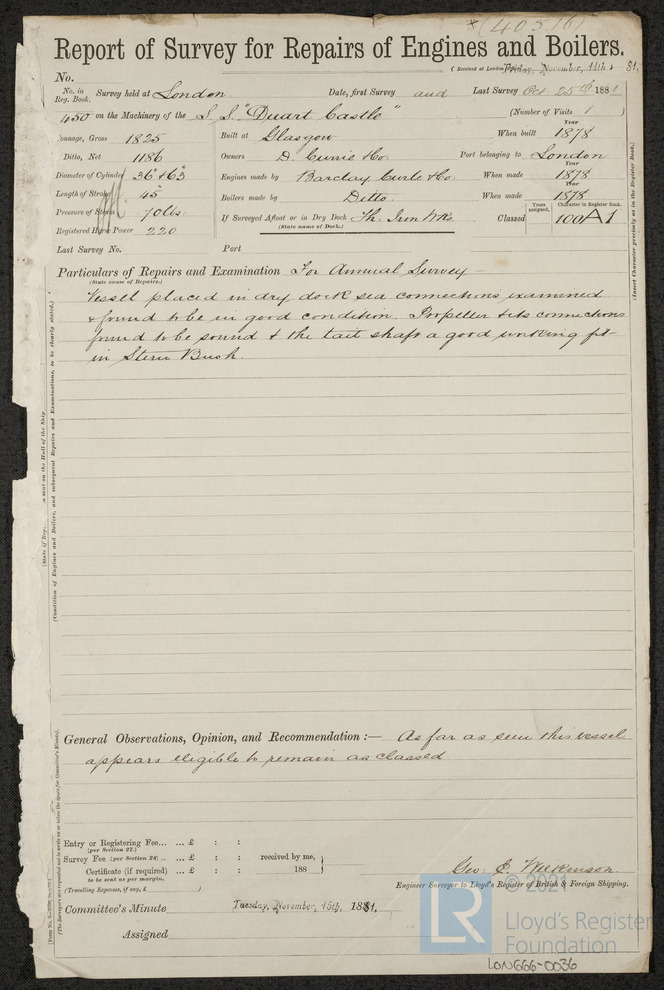 (40516)
Report of Survey for Repairs of Engines and Boilers.
(Received at London Office, Friday, November, 11th, 81.
No.
No. in Reg. Book. Survey held at London Date, first Survey and Last Survey Oct 25th 1881
450 on the Machinery of the S.S. "Duart Castle" (Number of Visits 1 )
Tonnage, Gross 1825 Built at Glasgow When built Year 1878
Ditto, Net 1186 Owners D. Currie & Co. Port belonging to London
Diameter of Cylinder 36" & 63" Engines made by Barclay Curle & Co. When made Year 1878
Length of Stroke 45" Boilers made by Ditto. When made Year 1878
Pressure of Steam 70 lbs. If Surveyed Afloat or in Dry Dock Th. Iron Wks. Classed Years assigned. Character in Register Book. 100A1
(State name of Dock.)
Registered Horse Power 220
Last Survey No. Port
Particulars of Repairs and Examination For Annual Survey
(State cause of Repairs.)
Vessel placed in dry dock sea connections examined
& found to be in good condition. Propeller & its connections
found to be sound & the tail shaft a good working fit
in Stern Bush.
General Observations, Opinion, and Recommendation :— As far as seen this vessel
appears eligible to remain as classed
Entry or Registering Fee... ... £ : :
(per Section 27.)
Survey Fee (per Section 28) .. ... £ : : received by me,
Certificate (if required) ... £ : : 188
to be sent as per margin.
(Travelling Expenses, if any, £ )
Geo. E. Wilkinson
Engineer Surveyor to Lloyd's Register of British & Foreign Shipping.
Committee's Minute Tuesday, November, 15th, 1881.
Assigned
(Insert Character precisely as in the Register Book.)
(Condition of Engines and Boilers, and subsequent Repairs and Examinations, to be clearly stated.)
(The Surveyors are requested not to write on or below the space for Committee's Minute).
LR
© 2021
Lloyd's Register
Foundation
LON666-0036